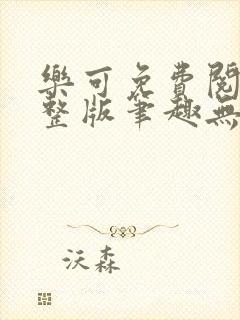 樂可免費閱
整版筆趣無
沃森